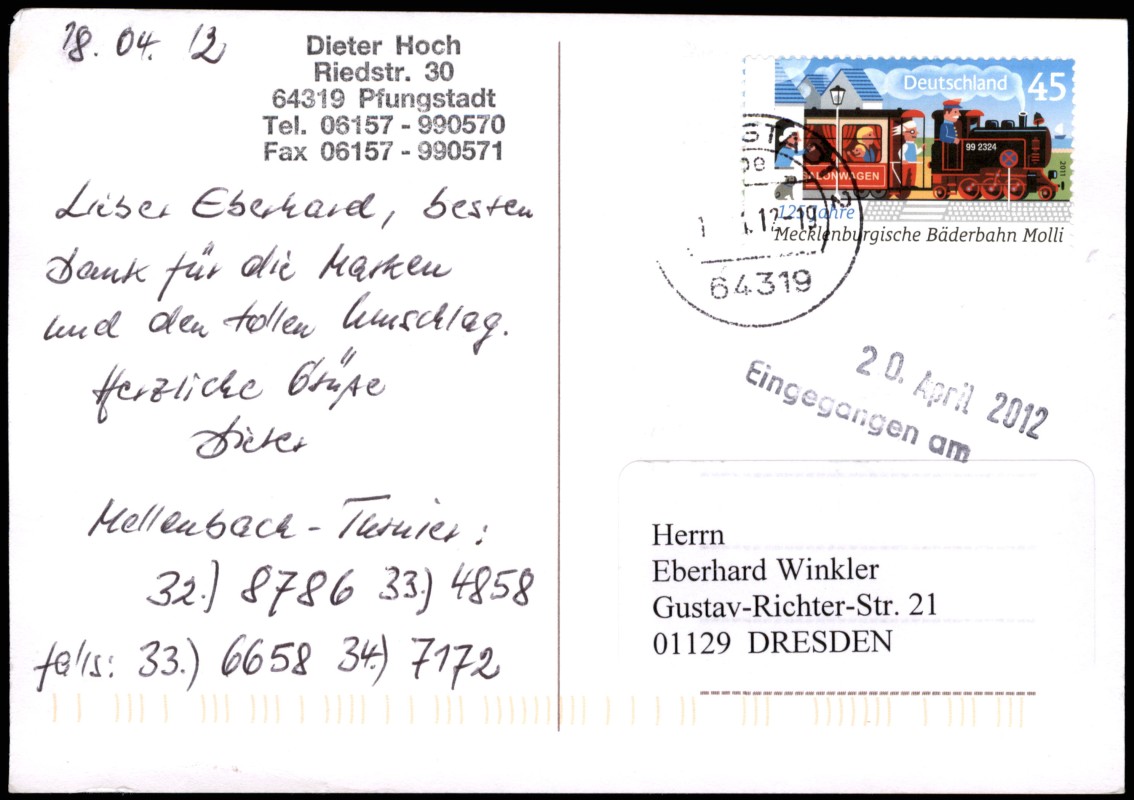 18. 04. 12
Dieter Hoch
Riedstr. 30
64319 Pfungstadt
Tel. 06157 - 990570
Fax 06157 - 990571
Lieber Eberhard, besten
Dank für die Marken
und den tollen Umschlag.
Herzliche Grüße
Dieter
Mellenbach - Turnier :
32.) 8786 33.) 4858
falls: 33.) 6658 34.) 7172
Deutschland 45
99 2324
SALONWAGEN
2011
125 Jahre
Mecklenburgische Bäderbahn Molli
64319
20. April 2012
Eingegangen am
Herrn
Eberhard Winkler
Gustav-Richter-Str. 21
01129 DRESDEN